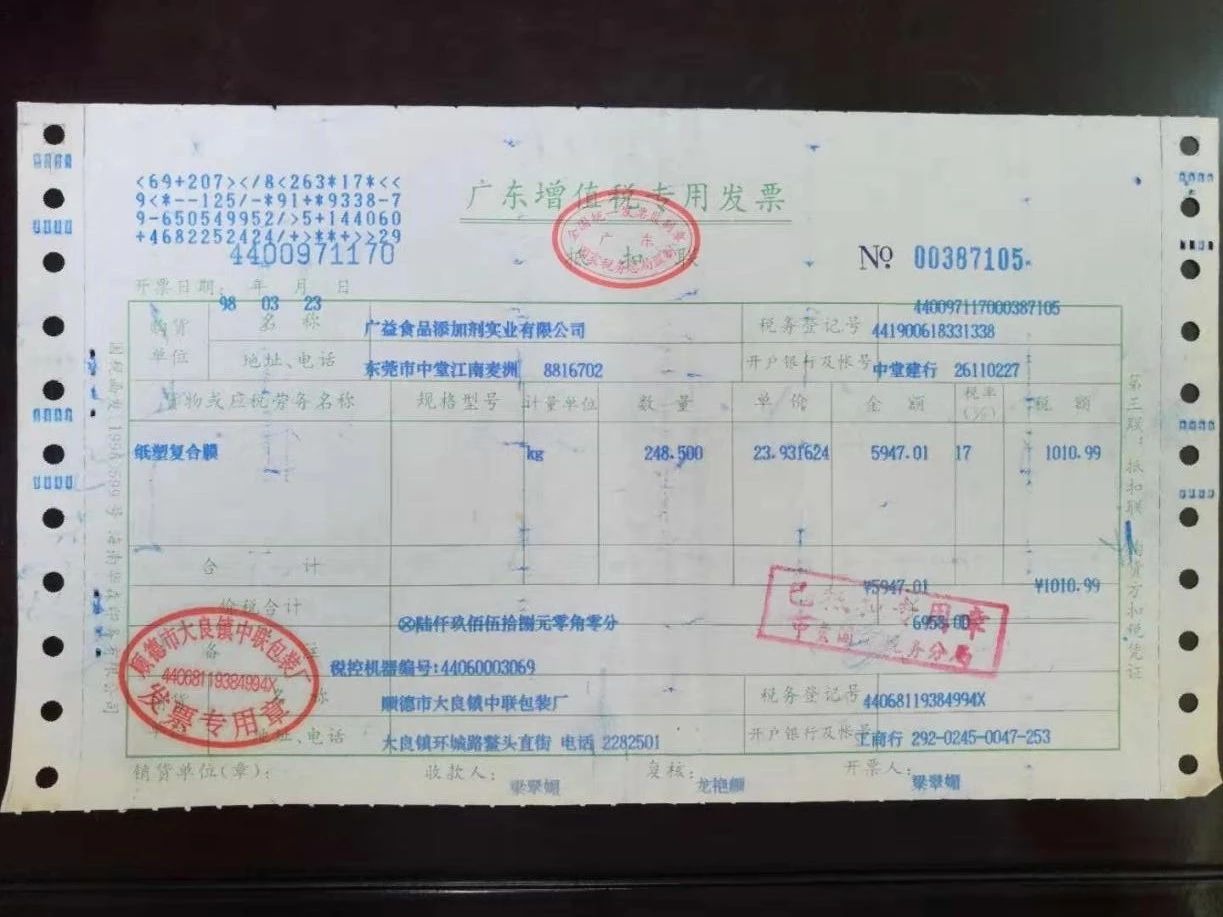 <69+207></8<263*17*<<
9<*--125/-*91+*9338-7
9-650549952/>5+144060
+4682252424/+>**+>>29
4400971170
广东增值税专用发票
全国统一发票监制章
广 东
抵 扣 联
№ 00387105
开票日期: 年 月 日
98 03 23
440097117000387105
购货单位
名 称 广益食品添加剂实业有限公司 税务登记号 441900618331338
地址、电话 东莞市中堂江南麦洲 8816702 开户银行及帐号 中堂建行 26110227
货物或应税劳务名称 规格型号 计量单位 数 量 单 价 金 额 税率(%) 税 额
纸塑复合膜 kg 248.500 23.931624 5947.01 17 1010.99
合 计 ¥5947.01 ¥1010.99
价税合计 ⊗陆仟玖佰伍拾捌元零角零分 6958.00
备
税控机器编号:44060003069
称 顺德市大良镇中联包装厂 税务登记号 44068119384994X
地址、电话 大良镇环城路鳌头直街 电话 2282501 开户银行及帐号 工商行 292-0245-0047-253
销货单位(章): 收款人: 梁翠媚 复核: 龙艳颜 开票人: 梁翠媚
顺德市大良镇中联包装厂
44068119384994X
发票专用章
税务分局
第三联:抵扣联 购货方扣税凭证